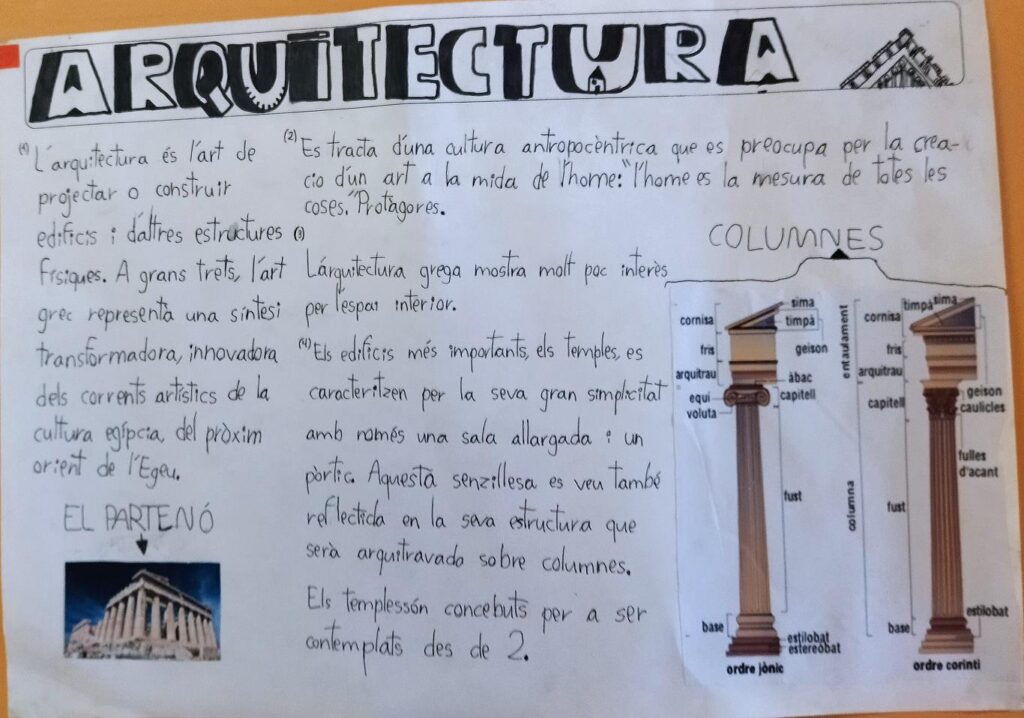 ARQUITECTURA
(1) L'arquitectura és l'art de
projectar o construir
edificis i d'altres estructures
físiques. A grans trets, l'art
grec representà una síntesi
transformadora, innovadora
dels corrents artístics de la
cultura egípcia, del pròxim
orient de l'Egeu.
EL PARTENÓ
(2) Es tracta d'una cultura antropocèntrica que es preocupa per la crea-
cio d'un art a la mida de l'home: "l'home es la mesura de totes les
coses." Protàgores.
(3)
L'arquitectura grega mostra molt poc interès
per l'espai interior.
(4) Els edificis més importants, els temples, es
caracteritzen per la seva gran simplicitat
amb només una sala allargada i un
pòrtic. Aquesta senzillesa es veu també
reflectida en la seva estructura que
serà arquitravada sobre columnes.
Els templessón concebuts per a ser
contemplats des de 2.
COLUMNES
sima
cornisa
timpà
fris
geison
arquitrau
àbac
equí
capitell
voluta
fust
base
estilobat
estereobat
ordre jònic
entaulament
columna
timpà
sima
cornisa
fris
arquitrau
geison
capitell
caulicles
fulles
d'acant
fust
estilobat
base
ordre corinti